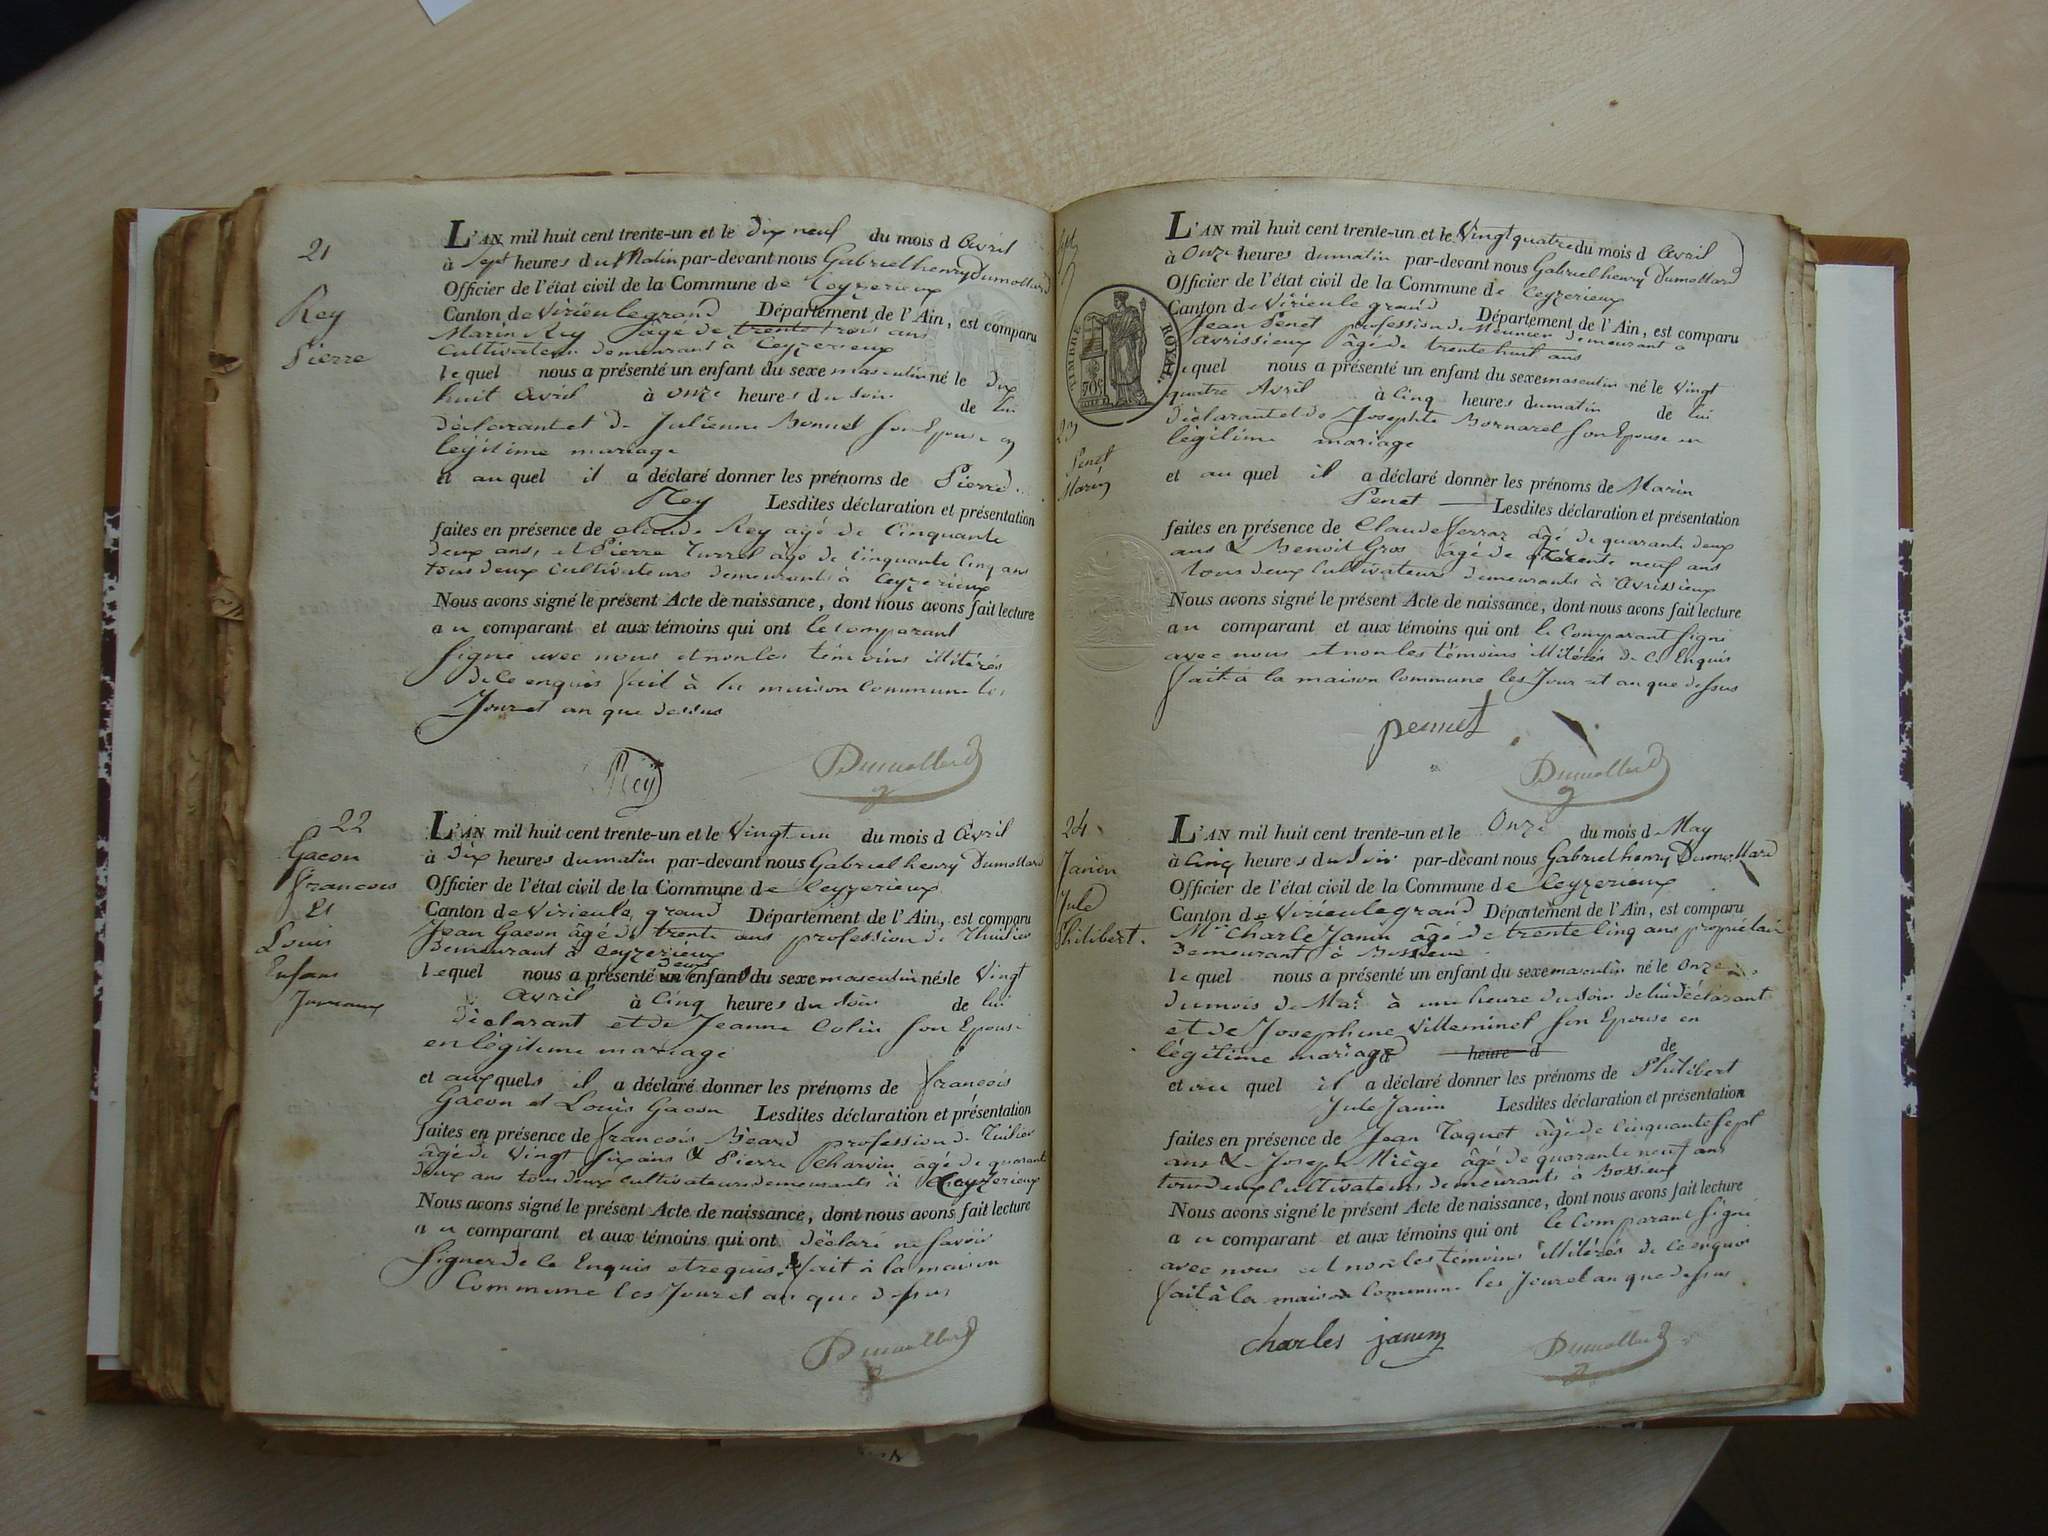 21
Rey
Pierre
L'AN mil huit cent trente-un et le dix neuf du mois d Avril
à sept heures du Matin par-devant nous Gabriel henry Dumollard
Officier de l'état civil de la Commune de Ceyzerieux
Canton de Virieulegrand Département de l'Ain, est comparu
Marin Rey âgé de trente trois ans
cultivateur demeurant à Ceyzerieux
lequel nous a présenté un enfant du sexe masculin né le dix
huit Avril à onze heures du soir de lui
déclarant et de Julienne Bonnet son Epouse en
légitime mariage
et auquel il a déclaré donner les prénoms de Pierre
Rey Lesdites déclaration et présentation
faites en présence de claude Rey agé de Cinquante
deux ans, et Pierre Turrel âgé de Cinquante Cinq ans
tous deux cultivateurs demeurants à Ceyzerieux
Nous avons signé le présent Acte de naissance, dont nous avons fait lecture
au comparant et aux témoins qui ont le comparant
signé avec nous et non les témoins illitérés
de ce enquis fait à la maison commune les
Jour et an que dessus
Rey
Dumollard
22
Gacon
francois
Et
Louis
Enfans
Jumeaux
L'AN mil huit cent trente-un et le Vingt un du mois d Avril
à Dix heures du matin par-devant nous Gabriel henry Dumollard
Officier de l'état civil de la Commune de Ceyzerieux
Canton de Virieule grand Département de l'Ain, est comparu
Jean Gacon âgé de trente ans profession de Thuilier
Demeurant à Ceyzerieux
lequel nous a présenté un deux enfant du sexe masculin nés le Vingt
Avril à Cinq heures du soir de lui
déclarant et de Jeanne Colin son Epouse
en légitime mariage
et auxquels il a déclaré donner les prénoms de françois
Gacon et Louis Gacon Lesdites déclaration et présentation
faites en présence de françois Béard profession de Tuilier
âgé de Vingt six ans & Pierre Charvin âgé de quarante
deux ans tous deux cultivateurs demeurants à Ceyzerieux
Nous avons signé le présent Acte de naissance, dont nous avons fait lecture
au comparant et aux témoins qui ont déclaré ne savoir
signer de ce Enquis et requis. fait à la maison
Commune les Jour et an que dessus
Dumollard
TIMBRE ROYAL.
70c
23
Penet
Marin
L'AN mil huit cent trente-un et le Vingt quatre du mois d Avril
à Onze heures du matin par-devant nous Gabriel henry Dumollard
Officier de l'état civil de la Commune de Ceyzerieux
Canton de Virieule grand Département de l'Ain, est comparu
Jean Penet profession de Meunier demeurant a
avrissieux âgé de trente huit ans
lequel nous a présenté un enfant du sexe masculin né le Vingt
quatre Avril à Cinq heures du matin de lui
déclarant et de Josephte Bornarel son Epouse en
légitime mariage
et auquel il a déclaré donner les prénoms de Marin
Penet Lesdites déclaration et présentation
faites en présence de Claude ferraz âgé de quarante deux
ans & Benoit Gros âgé de trente neuf ans
tous deux cultivateurs demeurants à Avrissieux
Nous avons signé le présent Acte de naissance, dont nous avons fait lecture
au comparant et aux témoins qui ont le Comparant signé
avec nous et non les témoins illitérés de ce Enquis
fait à la maison Commune les Jour et an que dessus
pennet
Dumollard
24
Janin
Jule
Philibert.
L'AN mil huit cent trente-un et le Onze du mois d May
à Cinq heures du soir par-devant nous Gabriel henry Dumollard
Officier de l'état civil de la Commune de Ceyzerieux
Canton de Virieulegrand Département de l'Ain, est comparu
Mr Charle Janin âgé de trente Cinq ans propriétaire
Demeurant à Bossieux
lequel nous a présenté un enfant du sexe masculin né le Onze
du mois de Mai à une heure du soir de lui déclarant
et de Josephine Villeminet son Epouse en
légitime mariage à heure d de
et au quel il a déclaré donner les prénoms de Philibert
Jule Janin Lesdites déclaration et présentation
faites en présence de Jean Taquet âgé de Cinquante sept
ans & Joseph Miège âgé de quarante neuf ans
tous deux cultivateurs demeurants à Bossieux
Nous avons signé le présent Acte de naissance, dont nous avons fait lecture
au comparant et aux témoins qui ont le Comparant signé
avec nous et non les témoins illitérés de ce enquis
fait à la maison Commune les Jour et an que dessus
charles janin
Dumollard